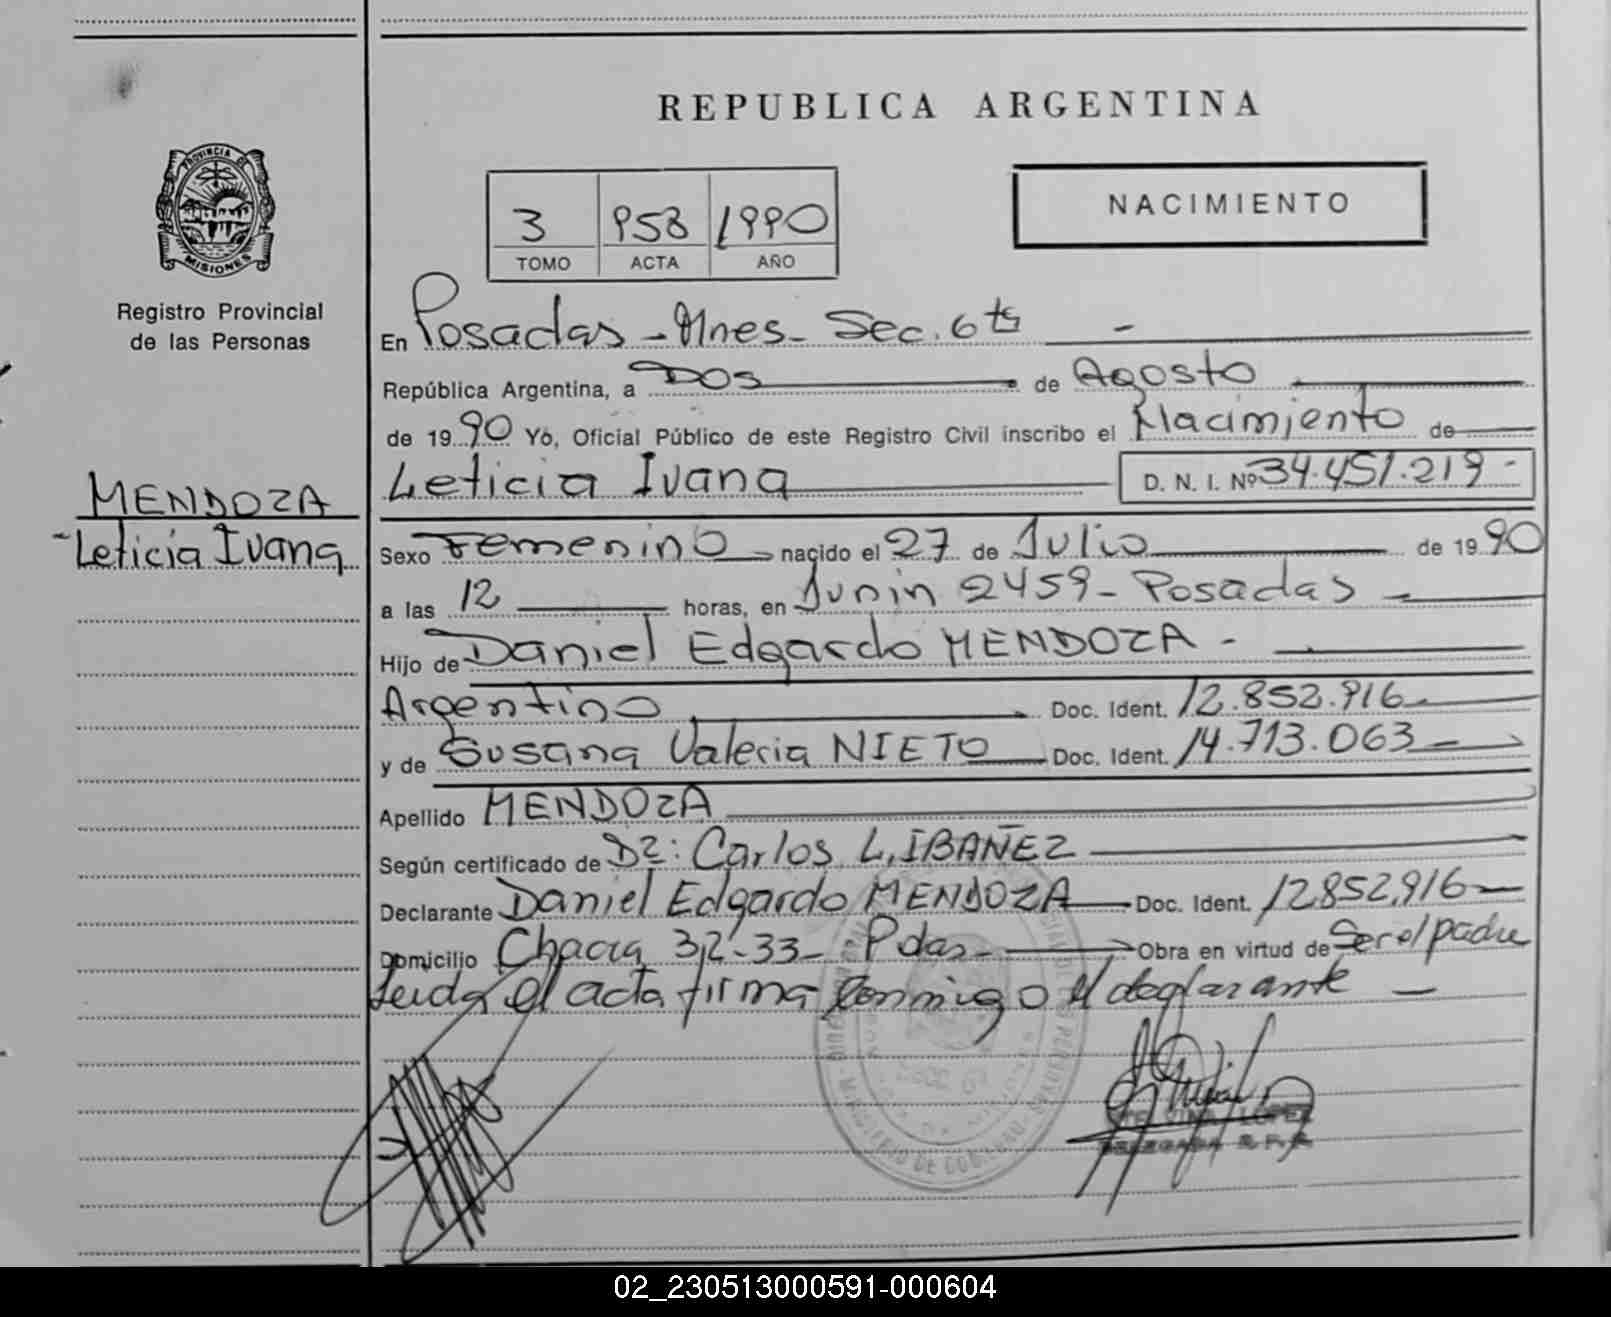 REPUBLICA ARGENTINA
PROVINCIA DE
MISIONES
Registro Provincial
de las Personas
3 958 1990
TOMO ACTA AÑO
NACIMIENTO
En Posadas - Mnes - Sec. 6ta -
República Argentina, a Dos de Agosto
de 1990 Yo, Oficial Público de este Registro Civil inscribo el Nacimiento de
Leticia Ivana D. N. I. Nº 34.451.219 -
MENDOZA
- Leticia Ivana
Sexo Femenino nacido el 27 de Julio de 1990
a las 12 horas, en Junin 2459 - Posadas
Hijo de Daniel Edgardo MENDOZA -
Argentino Doc. Ident. 12.852.916
y de Susana Valeria NIETO Doc. Ident. 14.713.063
Apellido MENDOZA
Según certificado de Dr: Carlos L. IBAÑEZ
Declarante Daniel Edgardo MENDOZA Doc. Ident. 12852,916
Domicilio Chacra 32-33 - Pdas - Obra en virtud de Ser el padre
Leida el acta firma conmigo el declarante -
LOPEZ
DELEGADA R. P. P.
02_230513000591-000604